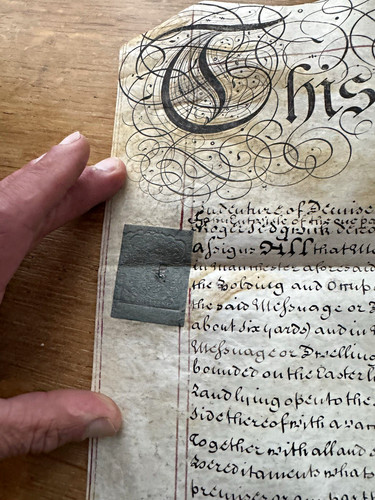 This
Indenture of Demise
Roger Sedgwick
assigns All that M
in Manchester aforesaid
the Holding and Occup
the said Messuage or D
about six yards) and in
Messuage or Dwellin
bounded on the Easterl
and lying open to the
side thereof with a va
Together with all and s
Hereditaments what
premises or any part